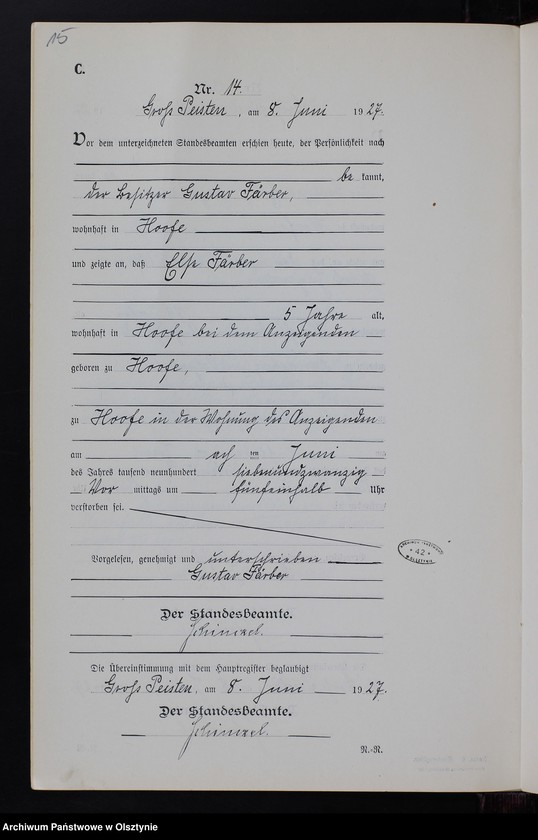 15
C.
Nr. 14.
Gross Peisten, am 8. Juni 1927.
Vor dem unterzeichneten Standesbeamten erschien heute, der Persönlichkeit nach
be kannt,
der Besitzer Gustav Färber,
wohnhaft in Hoofe
und zeigte an, daß Else Färber
5 Jahre alt,
wohnhaft in Hoofe bei dem Anzeigenden
geboren zu Hoofe,
zu Hoofe in der Wohnung des Anzeigenden
am ach ten Juni
des Jahres tausend neunhundert siebenundzwanzig
Vor mittags um fünfeinhalb Uhr
verstorben sei.
Vorgelesen, genehmigt und unterschrieben
Gustav Färber
Der Standesbeamte.
Die Übereinstimmung mit dem Hauptregister beglaubigt
Gross Peisten, am 8. Juni 1927.
Der Standesbeamte.
R.-R.
42
Archiwum Państwowe w Olsztynie